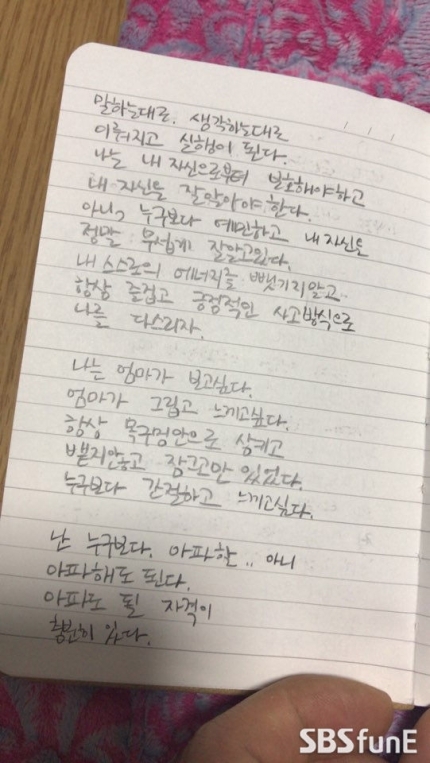 말하는대로. 생각하는대로
이뤄지고 실행이 된다.
나는 내 자신으로부터 보호해야하고
내 자신을 잘알아야 한다.
아니, 누구보다 예민하고 내자신을
정말 무섭게 잘알고있다.
내 스스로의 에너지를 뺏기지말고..
항상 즐겁고 긍정적인 사고방식으로
나를 다스리자.
나는 엄마가 보고싶다.
엄마가 그립고 느끼고싶다.
항상 목구멍안으로 삼키고
뱉지안놓고 잠그고만 있었다.
누구보다 간절하고 느끼고싶다.
난 누구보다. 아파할.. 아니
아파해도 된다.
아파도 될 자격이
충분히 있다.
SBSfunE